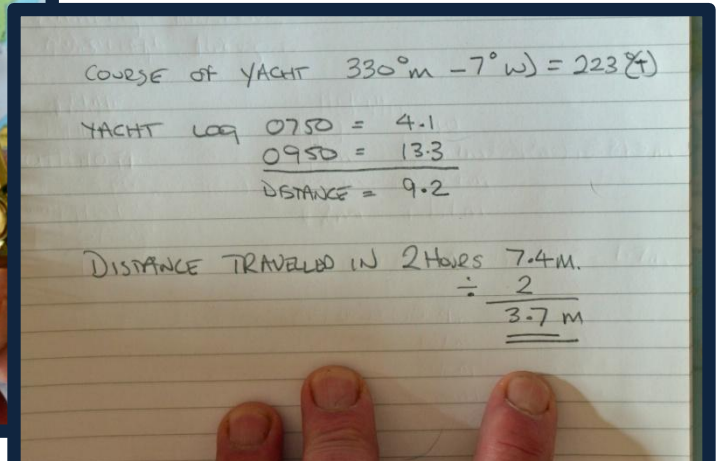 COURSE OF YACHT 330°m -7°W) = 223°(T)
YACHT LOG 0750 = 4.1
0950 = 13.3
DISTANCE = 9.2
DISTANCE TRAVELLED IN 2 HOURS 7.4M.
÷ 2
3.7 M